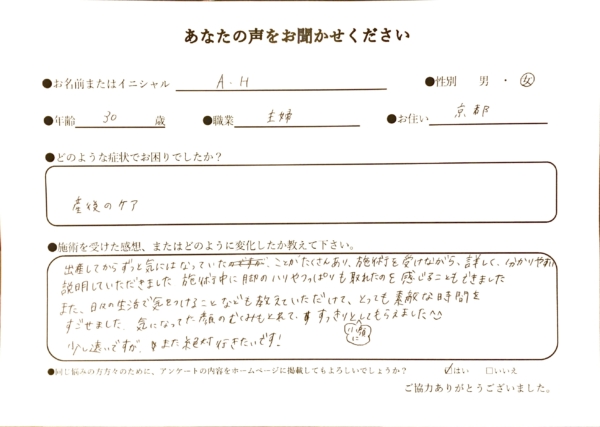 あなたの声をお聞かせください
●お名前またはイニシャル A.H ●性別 男・女
●年齢 30 歳 ●職業 主婦 ●お住い 京都
●どのような症状でお困りでしたか？
産後のケア
●施術を受けた感想、またはどのように変化したか教えて下さい。
出産してからずっと気にはなっていた ことがたくさんあり、施術を受けながら、詳しく、分かりやすく
説明していただきました 施術中に 脚のハリやつっぱりも取れたのを感じることもできました
また、日々の生活で気をつけることなども教えていただけて、とっても素敵な時間を
すごせました。気になってた顔のむくみもとれて、すっきりとしてもらえました^^
小顔に
少し遠いですが、また絶対行きたいです!
●同じ悩みの方方々のために、アンケートの内容をホームページに掲載してもよろしいでしょうか？ ☑はい □いいえ
ご協力ありがとうございました。